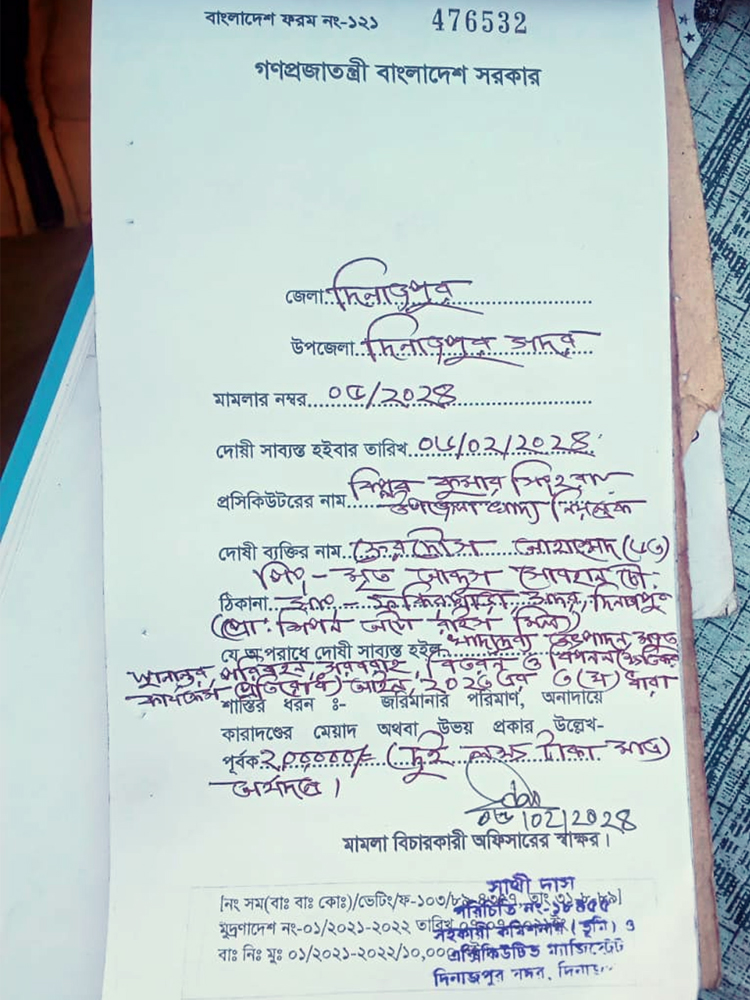 বাংলাদেশ ফরম নং-১২১ 476532
গণপ্রজাতন্ত্রী বাংলাদেশ সরকার
জেলা দিনাজপুর
উপজেলা দিনাজপুর সদর
মামলার নম্বর ০৫/২০২৪
দোষী সাব্যস্ত হইবার তারিখ ০৬/০২/২০২৪
প্রসিকিউটরের নাম বিপ্লব কুমার সিংহ
উপজেলা খাদ্য নিয়ন্ত্রক
দোষী ব্যক্তির নাম ফেরদৌস
পিং- মৃত
ঠিকানা সদর, দিনাজপুর
(প্রো: লিপন অটো রাইস মিল)
যে অপরাধে দোষী সাব্যস্ত হইল খাদ্যদ্রব্য উৎপাদন, মজুত
স্থানান্তর, পরিবহন, সরবরাহ, বিতরণ ও বিপণন (ক্ষতিকর
কার্যক্রম প্রতিরোধ) আইন, ২০২৩ এর ধারা
শাস্তির ধরন ঃ- জরিমানার পরিমাণ, অনাদায়ে
কারাদণ্ডের মেয়াদ অথবা উভয় প্রকার উল্লেখ-
পূর্বক ২০০০০০/= (দুই লক্ষ টাকা মাত্র)
অর্থদণ্ড।
০৬/০২/২০২৪
মামলা বিচারকারী অফিসারের স্বাক্ষর।
সাথী দাস
[নিং সম(বাঃ বাঃ কোঃ)/ভেটিং/ফ-১০৩/
পরিচিতি নং-১৮৪৫৫
মুদ্রণাদেশ নং-০১/২০২১-২০২২ তারিখ
সহকারী কমিশনার (ভূমি) ও
বাঃ নিঃ মুঃ ০১/২০২১-২০২২/১০,০০০
এক্সিকিউটিভ ম্যাজিস্ট্রেট
দিনাজপুর সদর,